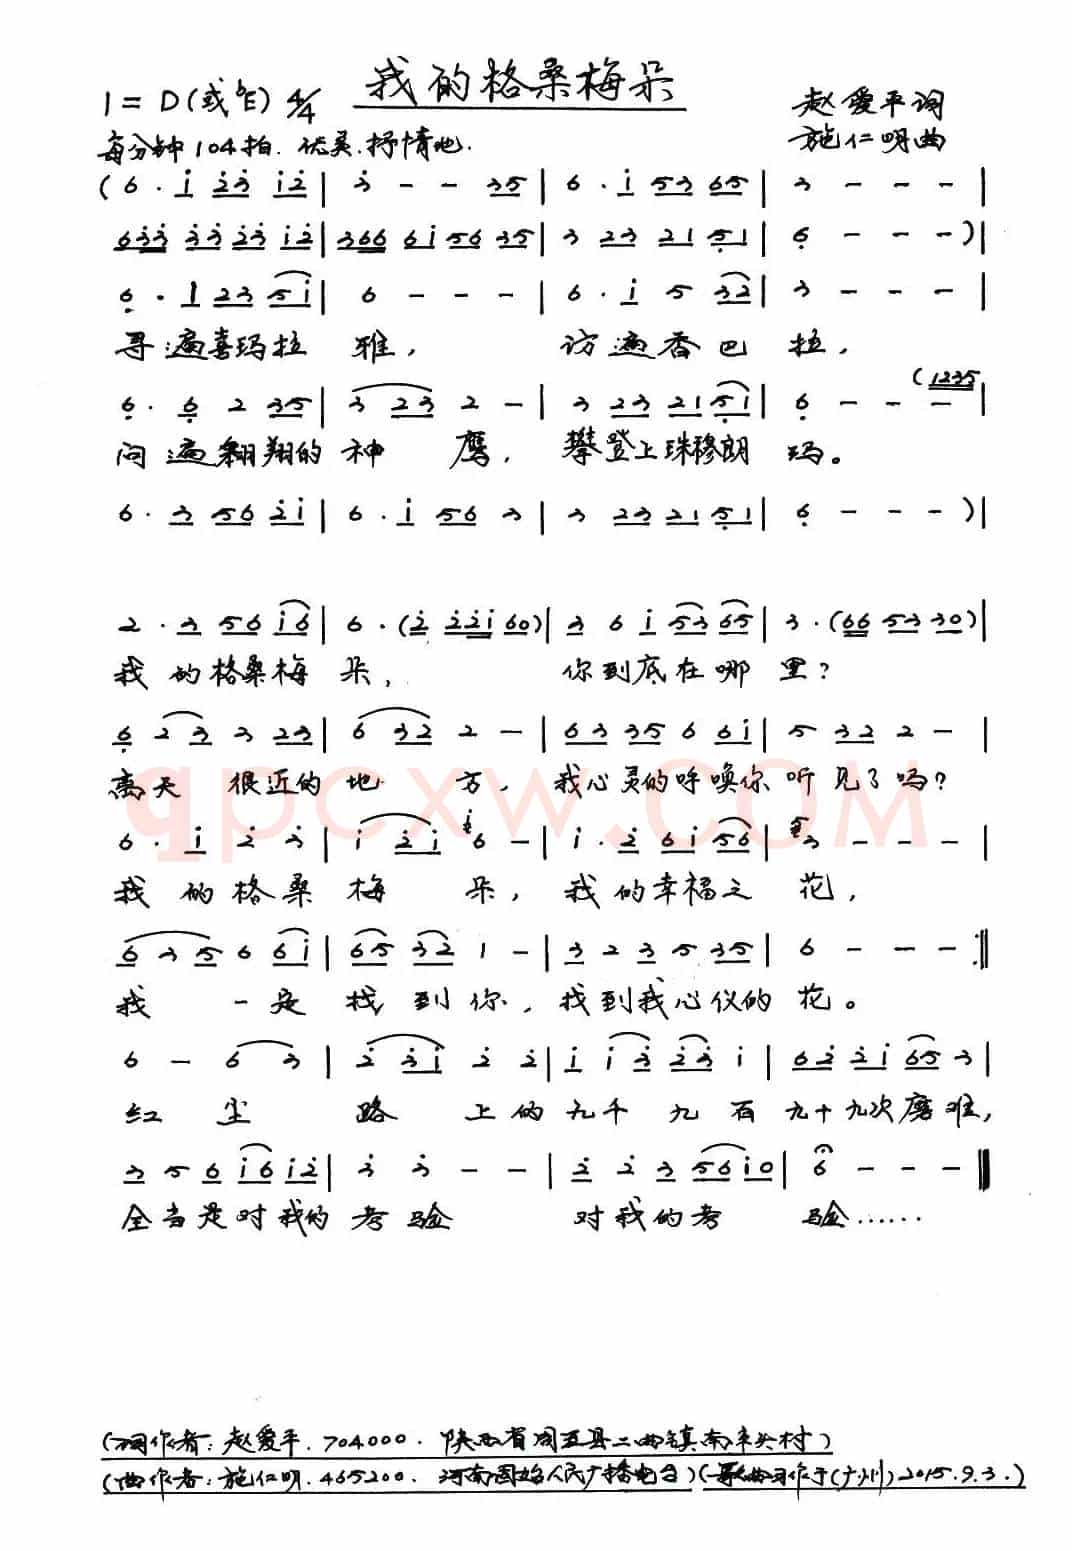 我的格桑梅朵
1=D(或♭E) 4/4
赵爱平词
每分钟104拍. 优美.抒情地.
施仁明曲
(6· i 2̇3̇ i2̇ | 3̇ - - 35 | 6· i 53 65 | 3 - - - |
63̇3̇ 3̇3̇ 2̇3̇ i2̇ | 366 6i 56 35 | 3 23 21 5̣1 | 6̣ - - - )|
6̣· 1 23 5i | 6 - - - | 6· i 5 32 | 3 - - - |
寻遍喜玛拉 雅, 访遍香巴 拉,
(1235
6̣· 6̣ 2 35 | 3 23 2 - | 3 23 21 5̣1 | 6̣ - - - |
问遍翱翔的 神 鹰, 攀登上珠穆朗 玛。
6· 3 56 2̇i | 6· i 56 3 | 3 23 21 5̣1 | 6̣ - - - )|
2· 3 56 i6 | 6·(2̇ 2̇2̇i 60)| 3 6 i 53 65 | 3·(66 53 30)|
我 的格桑梅 朵, 你到底在哪 里?
6̣ 2 3 3 23 | 6 32 2 - | 63 35 6 6i | 5 32 2 - |
离天 很近的 地 方, 我心灵的呼唤你 听见了吗?
6· i 2̇ 3̇ | i 2̇i 6 - | i· 2̇ 6i 56 | 3 - - - |
我 的格桑 梅 朵, 我的幸福之 花,
6 3 5 6 6i | 65 32 1 - | 3 2 3 5 35 | 6 - - - :‖
我 一定 找 到你, 找到我心仪的 花。
6 - 6 3 | 2̇ 3̇i 2̇ 2̇ | i i 3̇ 2̇3̇ i | 62̇ 2̇i 65 3 |
红 尘 路 上的九千 九 百九十九次磨难,
3 5 6 i6 i2̇ | 3̇ 3̇ - - | 2̇ 2̇ 3̇ 56 i0 | 6 - - - ‖
全当是对我的 考验 对我的考 验……
(词作者:赵爱平.704000. 陕西省周至县二曲镇南车头村)
(曲作者:施仁明.465200. 河南固始人民广播电台)(歌曲习作于(广州)2015.9.3.)
qpcxw.COM